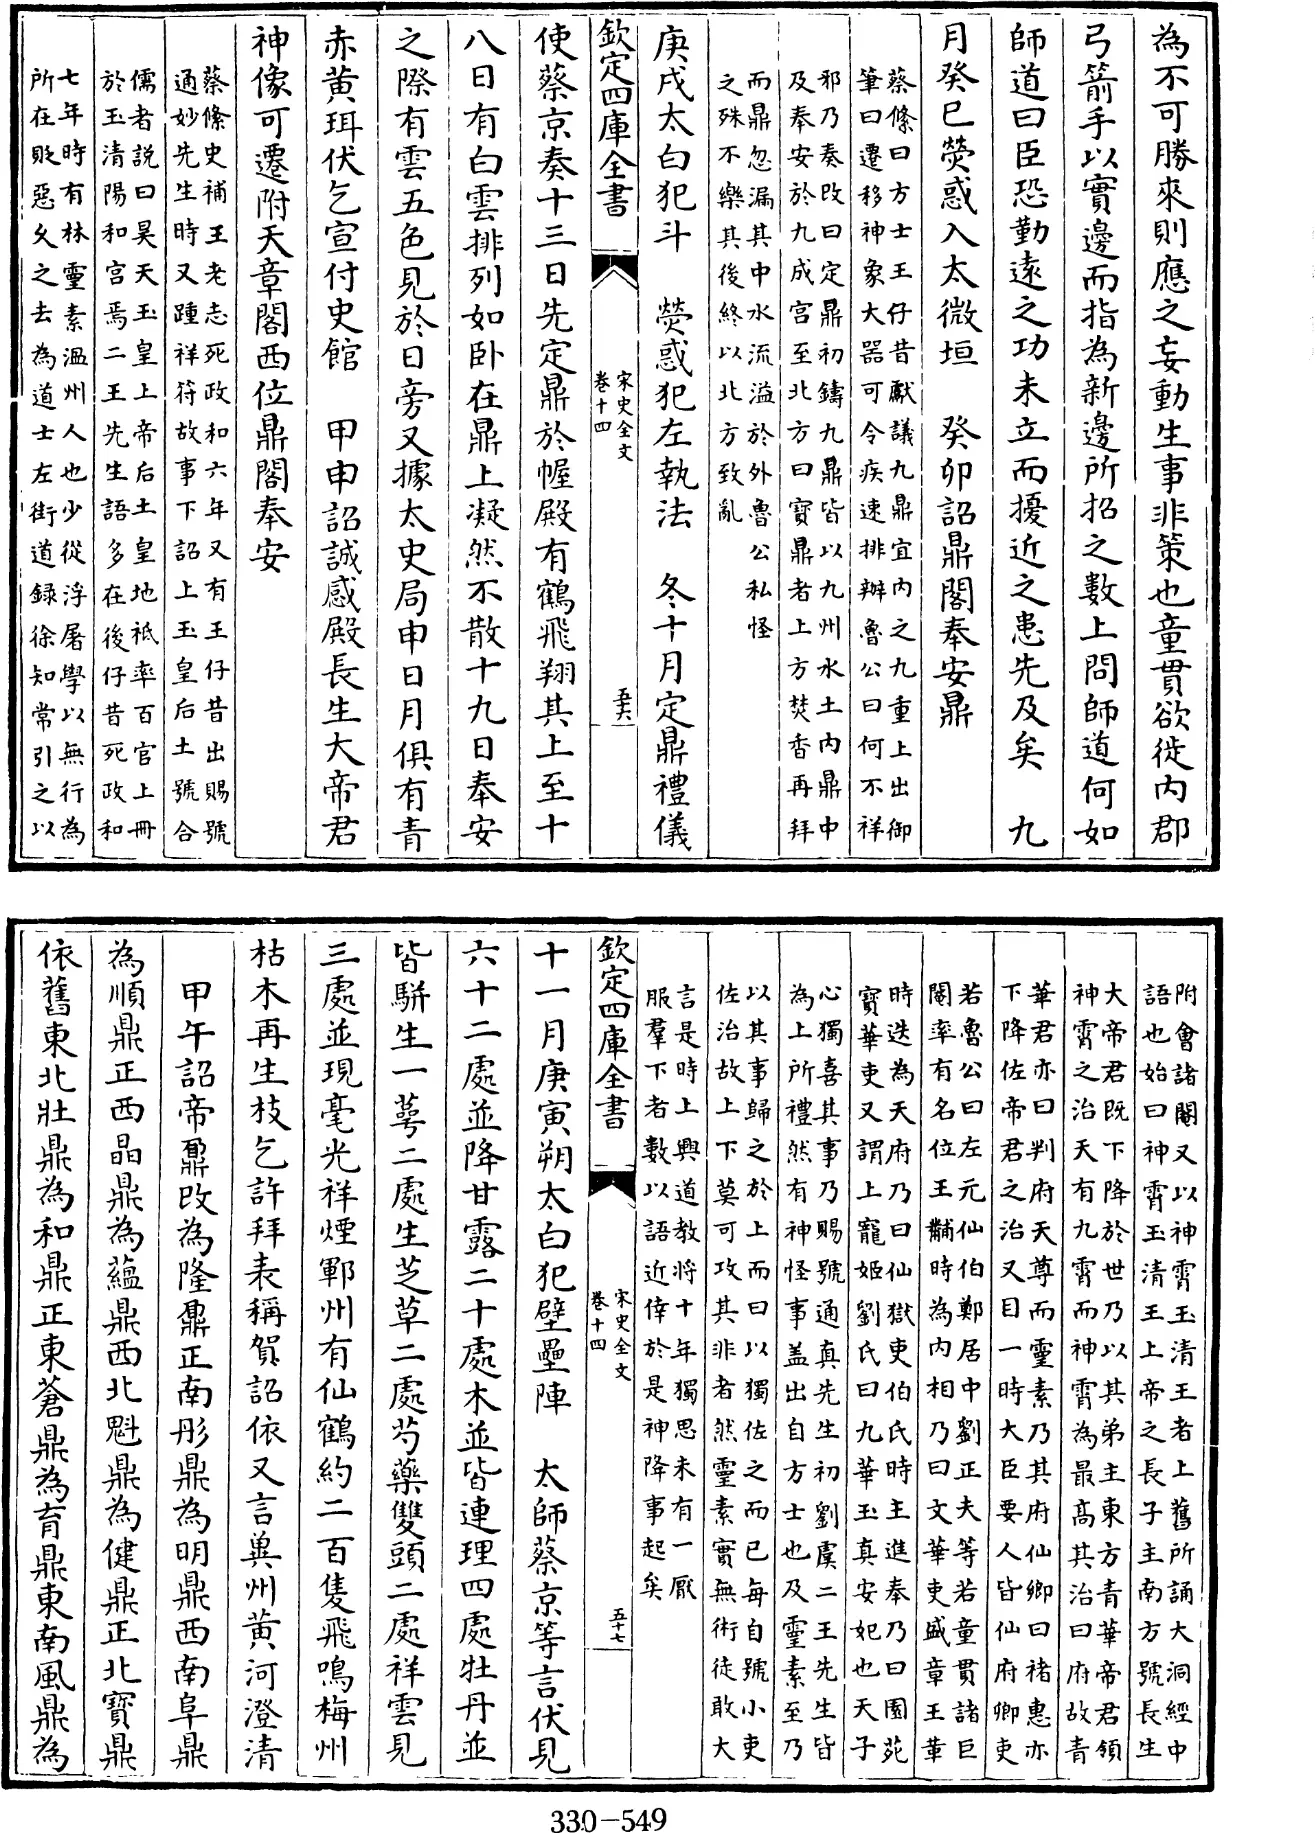 為不可勝來則應之妄動生事非策也童貫欲徙内郡
弓箭手以實邊而指為新邊所招之數上問師道何如
師道曰臣恐勤遠之功未立而擾近之患先及矣　九
月癸巳熒惑入太微垣　癸卯詔鼎閣奉安鼎
蔡絛曰方士王仔昔獻議九鼎宜内之九重上出御
筆曰遷移神象大器可令疾速排辦魯公曰何不祥
邪乃奏改曰定鼎初鑄九鼎皆以九州水土内鼎中
及奉安於九成宫至北方曰寳鼎者上方焚香再拜
而鼎忽漏其中水流溢於外魯公私怪
之殊不樂其後終以北方致亂
庚戌太白犯斗　熒惑犯左執法　冬十月定鼎禮儀
欽定四庫全書
宋史全文
卷十四
五六
使蔡京奏十三日先定鼎於幄殿有鶴飛翔其上至十
八日有白雲排列如卧在鼎上凝然不散十九日奉安
之際有雲五色見於日旁又據太史局申日月俱有青
赤黄珥伏乞宣付史館　甲申詔誠感殿長生大帝君
神像可遷附天章閣西位鼎閣奉安
蔡絛史補王老志死政和六年又有王仔昔出賜號
通妙先生時又踵祥符故事下詔上玉皇后土號合
儒者説曰昊天玉皇上帝后土皇地祗率百官上冊
於玉清陽和宫焉二王先生語多在後仔昔死政和
七年時有林靈素溫州人也少從浮屠學以無行為
所在敗惡久之去為道士左街道録徐知常引之以
附會諸閹又以神霄玉清王者上舊所誦大洞經中
語也始曰神霄玉清王上帝之長子主南方號長生
大帝君既下降於世乃以其弟主東方青華帝君領
神霄之治天有九霄而神霄為最高其治曰府故青
華君亦曰判府天尊而靈素乃其府仙卿曰褚惠亦
下降佐帝君之治又目一時大臣要人皆仙府卿吏
若魯公曰左元仙伯鄭居中劉正夫等若童貫諸巨
閹率有名位王黼時為内相乃曰文華吏盛章王革
時迭為天府乃曰仙獄吏伯氏時主進奉乃曰園苑
寳華吏又謂上寵姬劉氏曰九華玉真安妃也天子
心獨喜其事乃賜號通真先生初劉虞二王先生皆
為上所禮然有神怪事盖出自方士也及靈素至乃
以其事歸之於上而曰以獨佐之而已每自號小吏
佐治故上下莫可攻其非者然靈素實無術徒敢大
言是時上興道教將十年獨思未有一厭
服羣下者數以語近倖於是神降事起矣
欽定四庫全書
宋史全文
卷十四
五十七
十一月庚寅朔太白犯壁壘陣　太師蔡京等言伏見
六十二處並降甘露二十處木並皆連理四處牡丹並
皆駢生一蕚二處生芝草二處芍藥雙頭二處祥雲見
三處並現毫光祥煙鄆州有仙鶴約二百隻飛鳴梅州
枯木再生枝乞許拜表稱賀詔依又言兾州黄河澄清
甲午詔帝鼐改為隆鼐正南彤鼎為明鼎西南阜鼎
為順鼎正西晶鼎為蘊鼎西北魁鼎為健鼎正北寳鼎
依舊東北壯鼎為和鼎正東蒼鼎為育鼎東南風鼎為
330-549